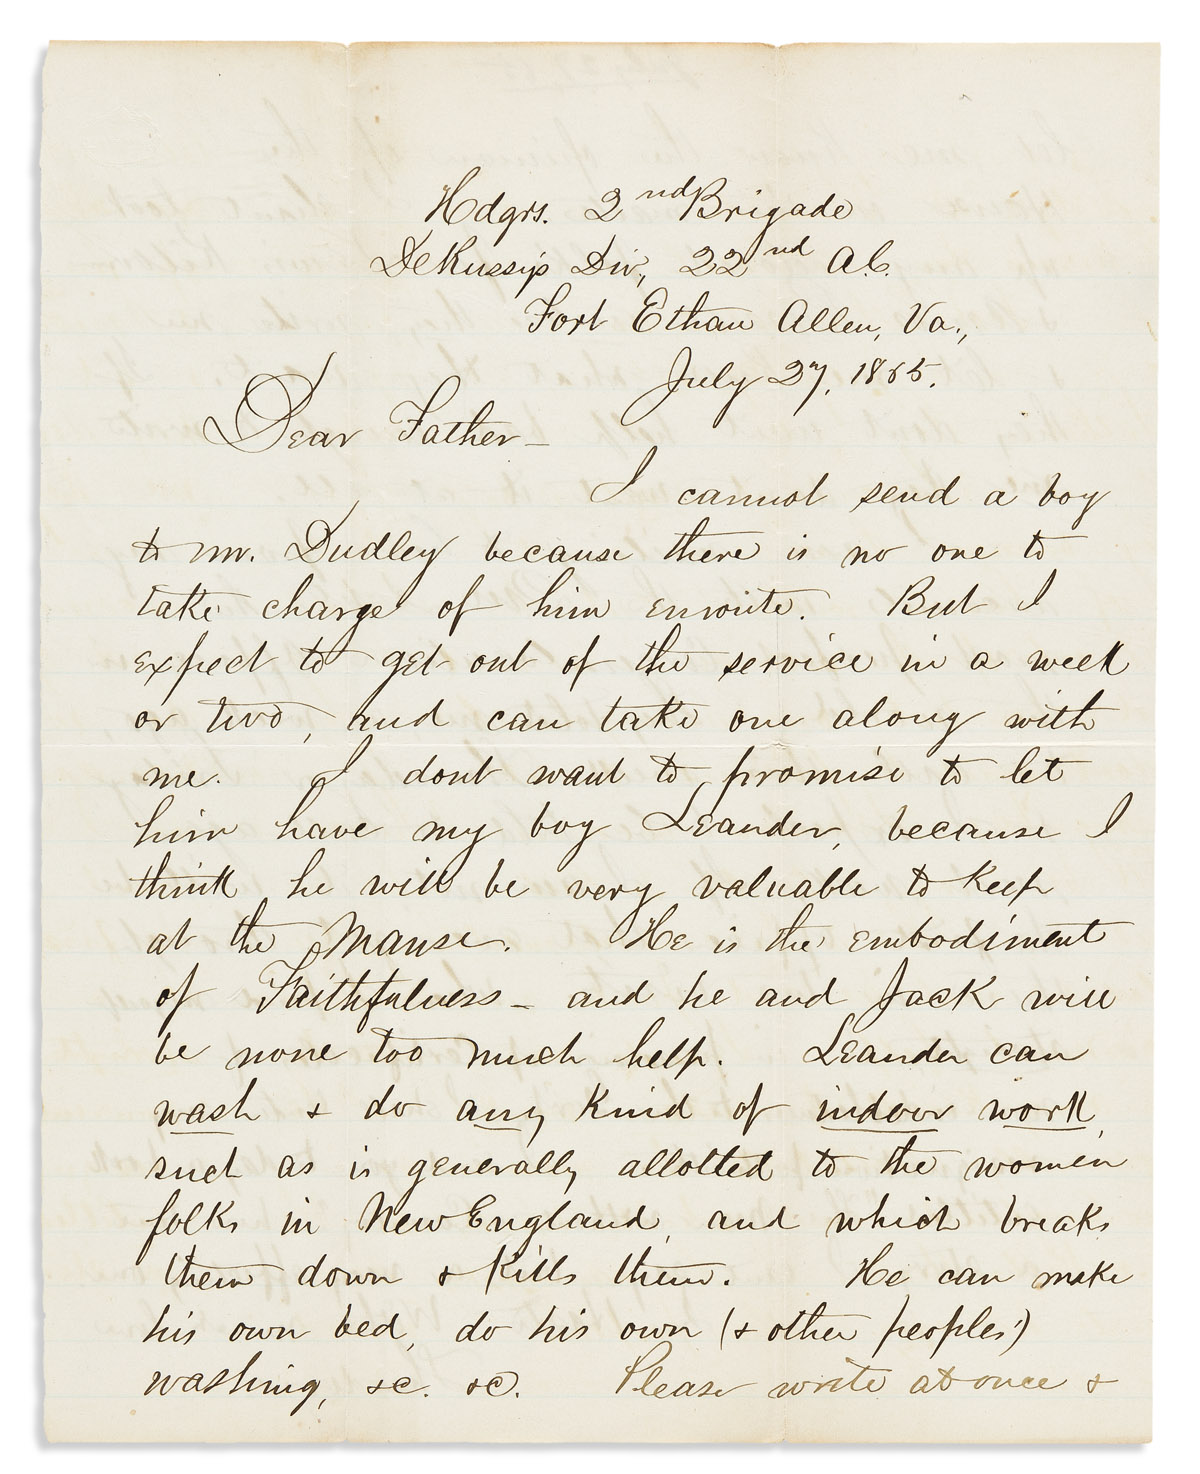 Hdqrs. 2nd Brigade
DeRussy's Div., 22nd A.C.
Fort Ethan Allen, Va.,
July 27, 1865.
Dear Father —
I cannot send a boy
to Mr. Dudley because there is no one to
take charge of him enroute. But I
expect to get out of the service in a week
or two, and can take one along with
me. I dont want to promise to let
him have my boy Leander, because I
think he will be very valuable to keep
at the Manse. He is the embodiment
of Faithfulness — and he and Jack will
be none too much help. Leander can
wash & do any kind of indoor work,
such as is generally allotted to the women
folks in New England, and which breaks
them down & kills them. He can make
his own bed, do his own (& other peoples')
washing, &c. &c. Please write at once &